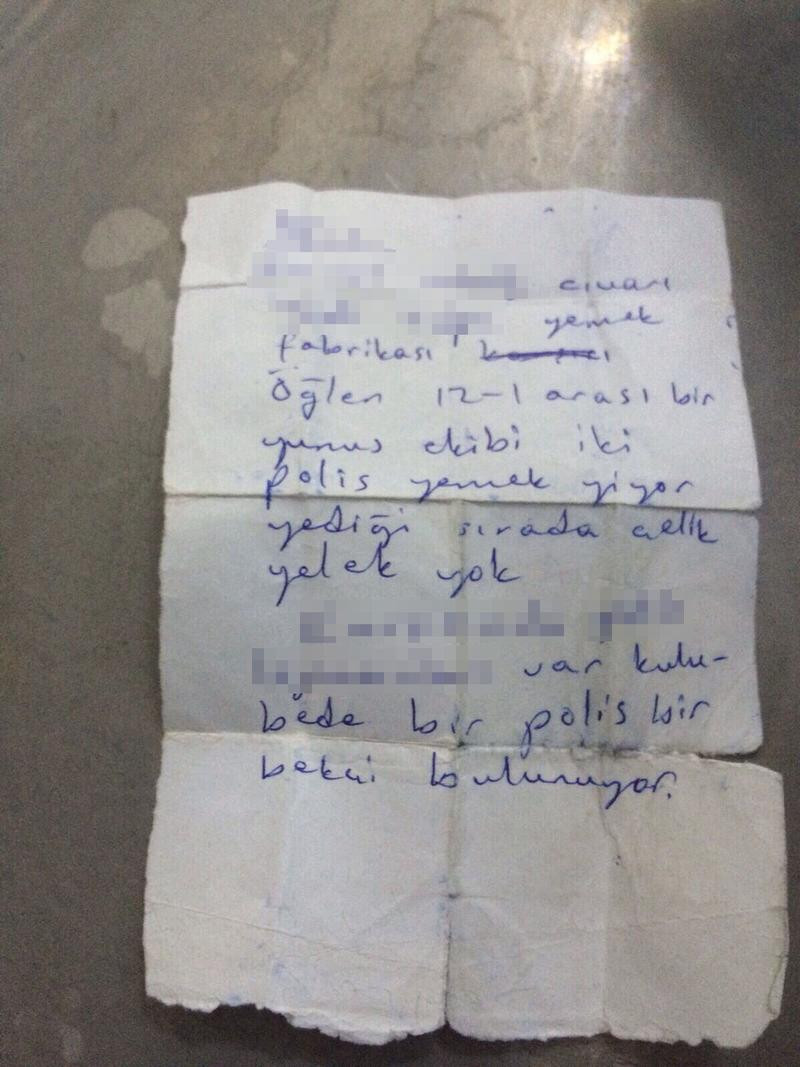 civarı
yemek
fabrikası
Öğlen 12-1 arası bir
yunus ekibi iki
polis yemek yiyor
yediği sırada çelik
yelek yok
var kulu-
bede bir polis bir
bekçi bulunuyor.